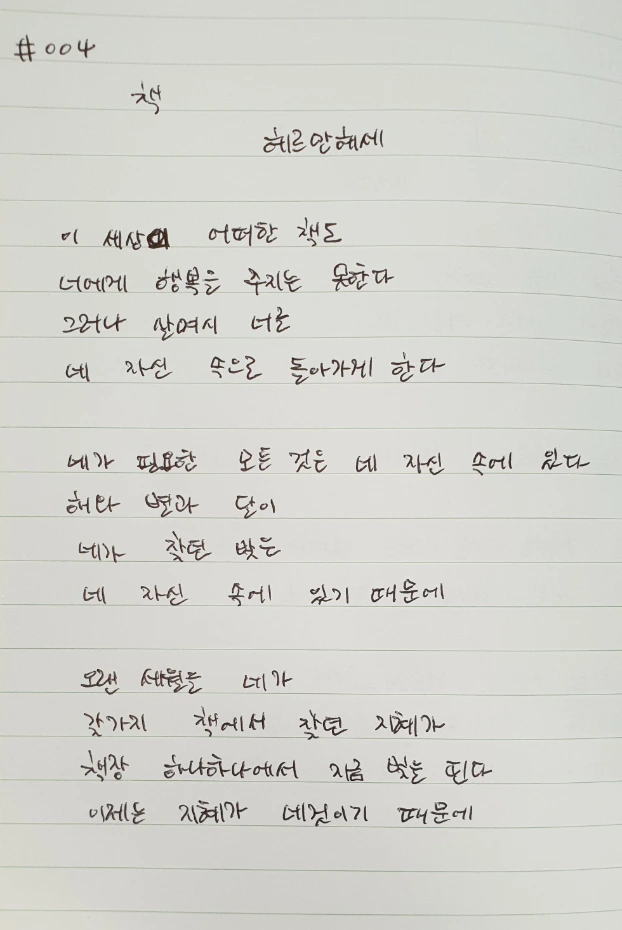 #004
책
헤르만헤세
이 세상의 어떠한 책도
너에게 행복을 주지는 못한다
그러나 살며시 너를
네 자신 속으로 돌아가게 한다
네가 필요한 모든 것은 네 자신 속에 있다
해와 별과 달이
네가 찾던 빛은
네 자신 속에 있기 때문에
오랜 세월을 네가
갖가지 책에서 찾던 지혜가
책장 하나하나에서 지금 빛을 띈다
이제는 지혜가 네것이기 때문에